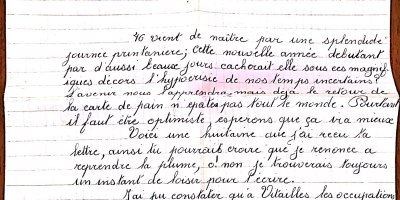 46 vient de naître par une splendide
journée printanière; Cette nouvelle année débutant
par d'aussi beaux jours cacherait elle sous ces magnif
iques décors l'hypocrisie de nos temps incertains?
L'avenir nous l'apprendra, mais déjà le retour de
la carte de pain n'épate pas tout le monde. Pourtant
il faut être optimiste, espérons que ça ira mieux
Voici une huitaine que j'ai reçu ta
lettre, ainsi tu pourrais croire que je renonce à
reprendre la plume, o! non je trouverais toujours
un instant de loisir pour t'écrire.
J'ai pu constater qu'à Vitailles les occupations